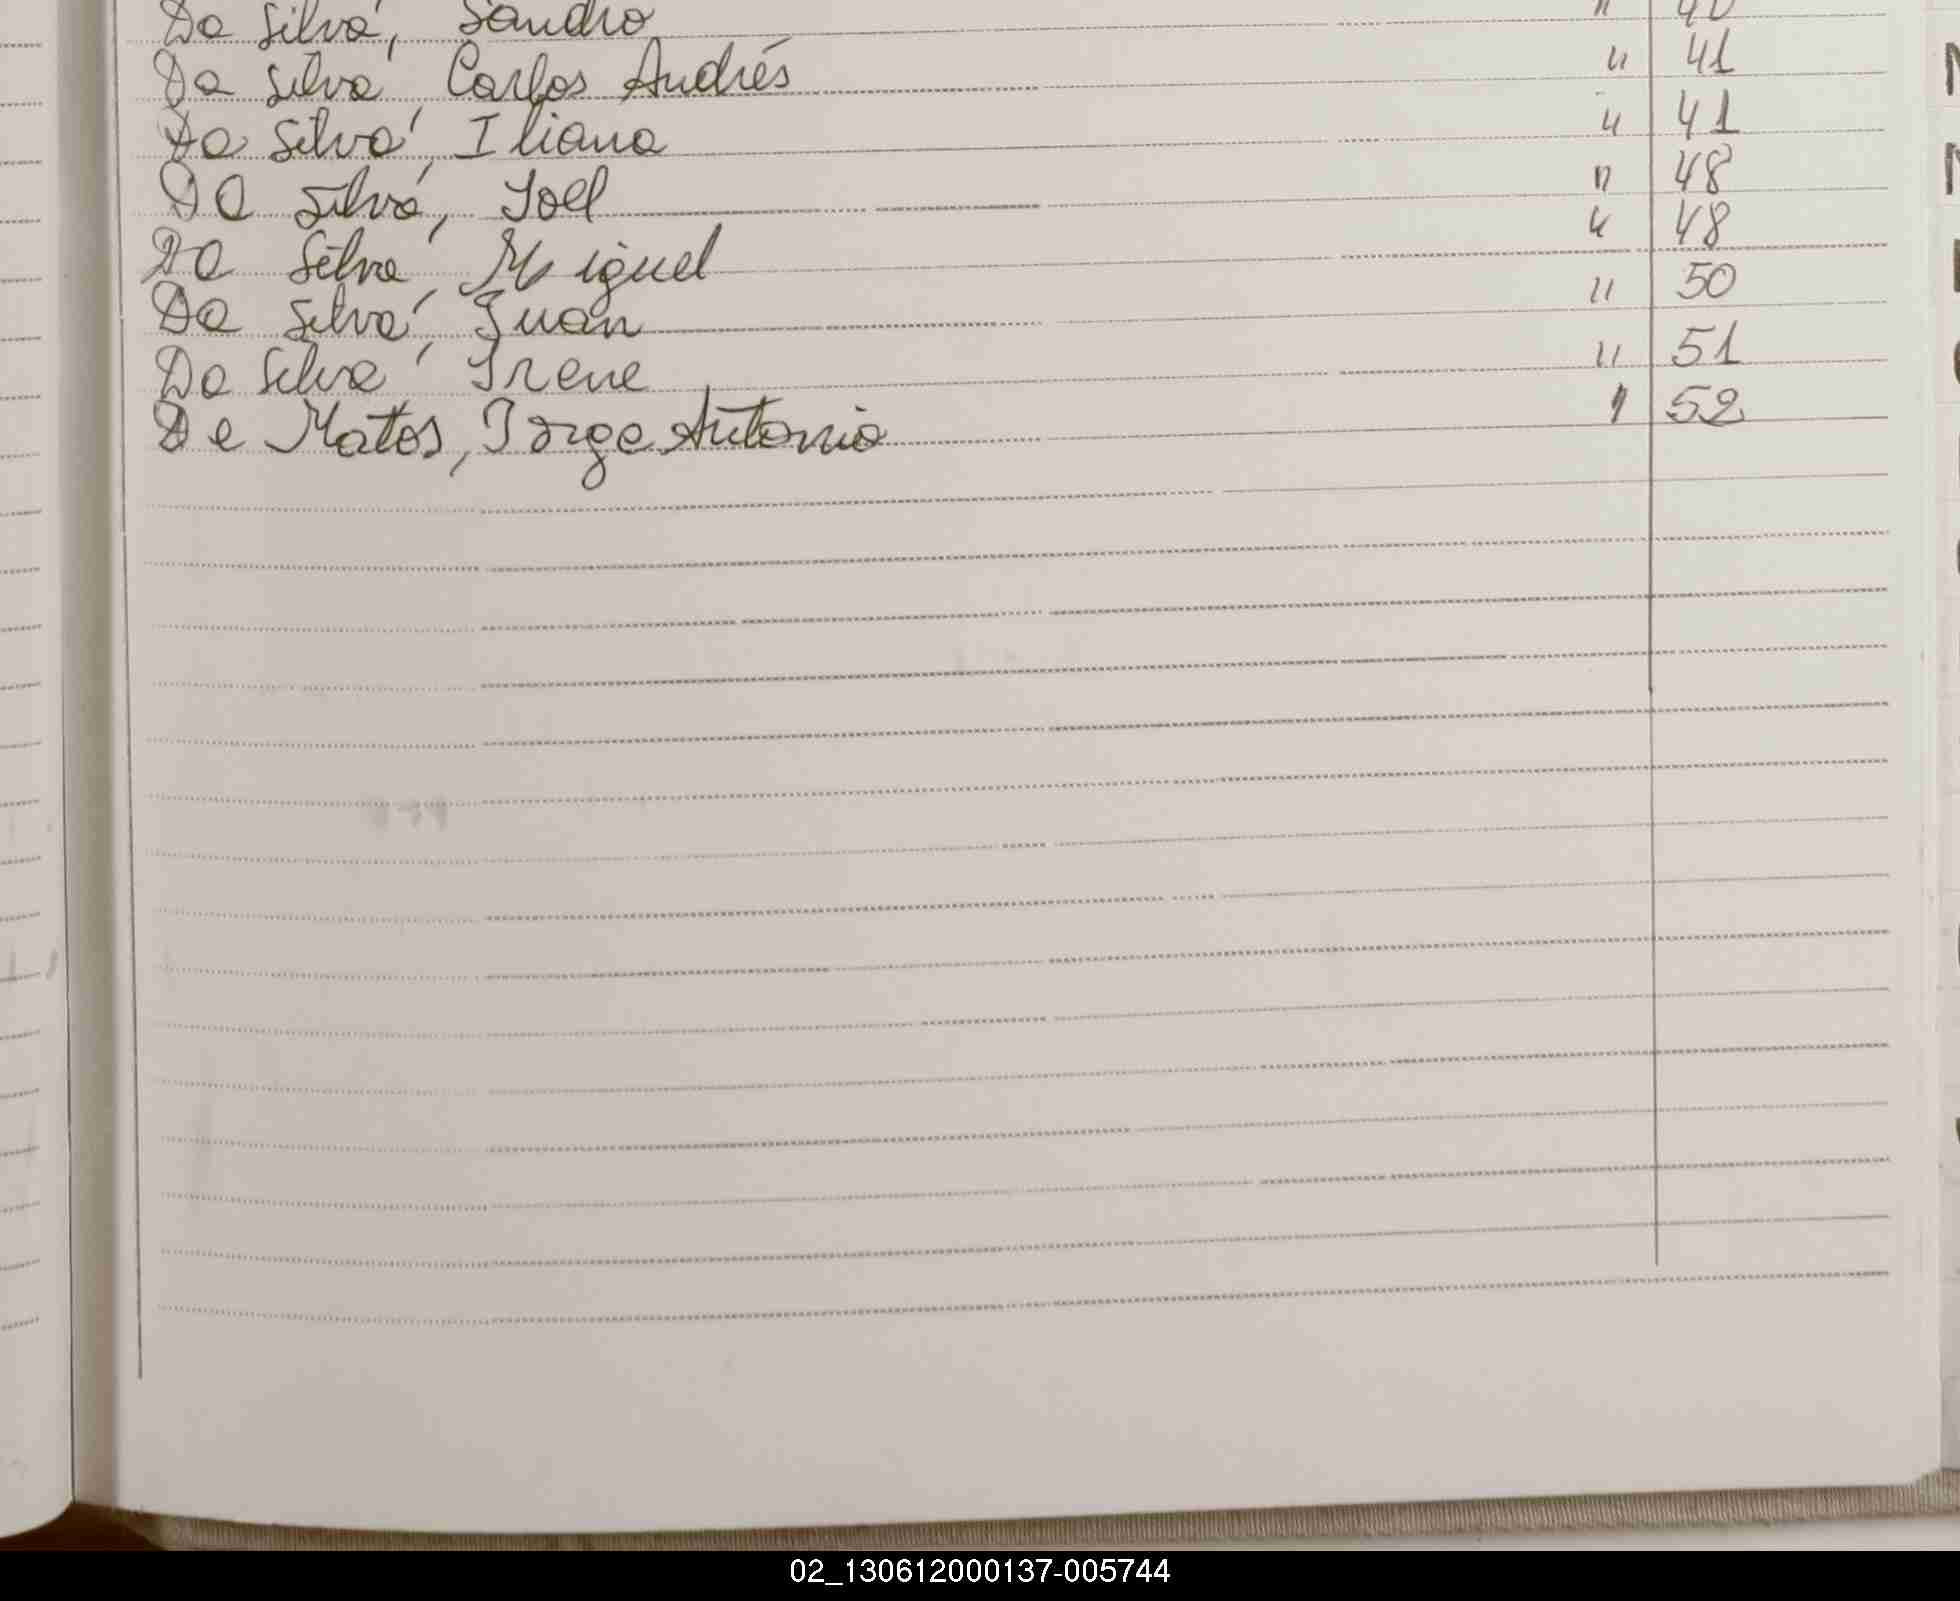 Da Silva, Sandro " 40
Da Silva, Carlos Andrés " 41
Da Silva, Iliana " 41
Da Silva, Joel " 48
Da Silva, Miguel " 48
Da Silva, Juan " 50
Da Silva, Irene " 51
De Matos, Jorge Antonio " 52
02_130612000137-005744